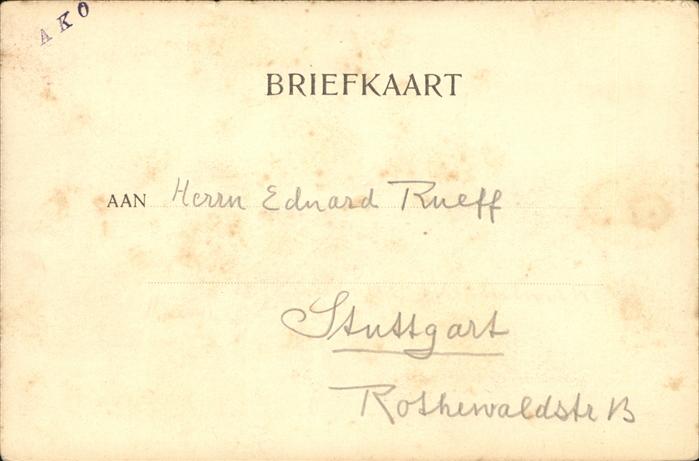 AKO
BRIEFKAART
AAN Herrn Eduard Rueff
Stuttgart
Rothewaldstr